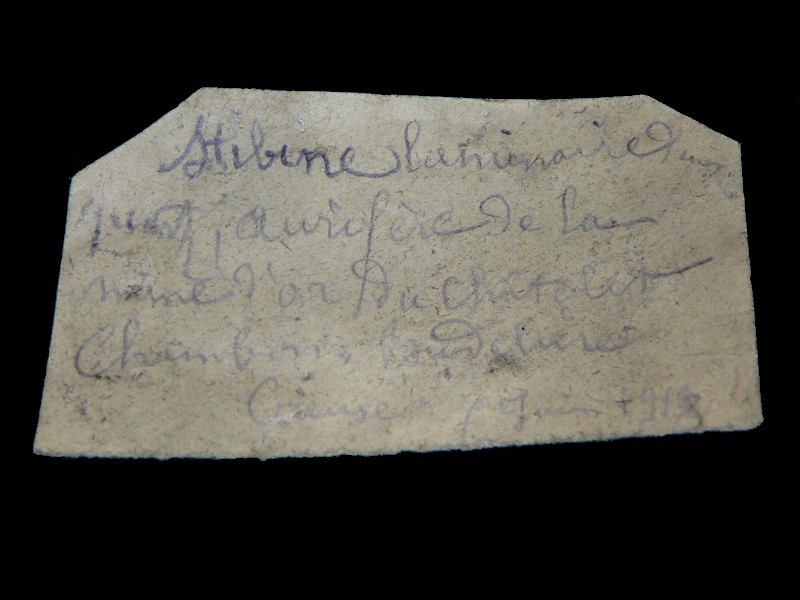 Stibine laminaire dans
quartz aurifère de la
mine d'or du Châtelet
Chambon
Creuse 7 Juin 1913